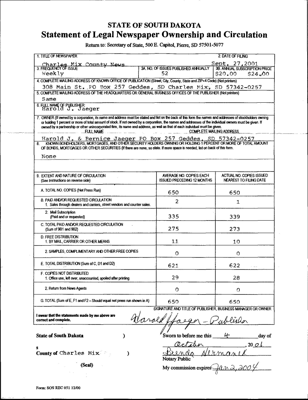 STATE OF SOUTH DAKOTA
Statement of Legal Newspaper Ownership and Circulation
Return to: Secretary of State, 500 E. Capitol, Pierre, SD 57501-5077
1. TITLE OF NEWSPAPER
2. DATE OF FILING
Charles Mix County News
Sept. 27, 2001
3. FREQUENCY OF ISSUE
3A. NO. OF ISSUES PUBLISHED ANNUALLY
3B. ANNUAL SUBSCRIPTION PRICE
weekly
52
$20.00 $24.00
4. COMPLETE MAILING ADDRESS OF KNOWN OFFICE OF PUBLICATION (Street, City, County, State and ZIP+4 Code) (Not printers)
308 Main St. PO Box 257 Geddes, SD Charles Mix, SD 57342-0257
5. COMPLETE MAILING ADDRESS OF THE HEADQUARTERS OR GENERAL BUSINESS OFFICES OF THE PUBLISHER (Not printers)
Same
6. FULL NAME OF PUBLISHER
Harold J. Jaeger
7. OWNER (If owned by a corporation, its name and address must be stated and list on the back of this form the names and addresses of stockholders owning
or holding 1 percent or more of total amount of stock. If not owned by a corporation, the names and addresses of the individual owners must be given. If
owned by a partnership or other unincorporated firm, its name and address, as well as that of each individual must be given.
FULL NAME
COMPLETE MAILING ADDRESS
Harold J. & Bernice Jaeger PO Box 257 Geddes, SD 57342-0257
8. KNOWN BONDHOLDERS, MORTGAGEES, AND OTHER SECURITY HOLDERS OWNING OR HOLDING 1 PERCENT OR MORE OF TOTAL AMOUNT
OF BONDS, MORTGAGES OR OTHER SECURITIES (If there are none, so state. If more space is needed, list on back of this form.
None
9. EXTENT AND NATURE OF CIRCULATION
(See instructions on reverse side)
AVERAGE NO. COPIES EACH
ISSUED PRECEDING 12 MONTHS
ACTUAL NO. COPIES ISSUED
NEAREST TO FILING DATE
A. TOTAL NO. COPIES (Net Press Run)
650
650
B. PAID AND/OR REQUESTED CIRCULATION
1. Sales through dealers and carriers, street vendors and counter sales
2
1
2. Mail Subscription
(Paid and or requested)
335
339
C. TOTAL PAID AND/OR REQUESTED CIRCULATION
(Sum of 9B1 and 9B2)
275
273
D. FREE DISTRIBUTION
1. BY MAIL, CARRIER OR OTHER MEANS
11
10
2. SAMPLES, COMPLIMENTARY AND OTHER FREE COPIES
0
0
E. TOTAL DISTRIBUTION (Sum of C, D1 and D2)
621
622
F. COPIES NOT DISTRIBUTED
1. Office use, left over, unaccounted, spoiled after printing
29
28
2. Return from News Agents
0
0
G. TOTAL (Sum of E, F1 and F2 - Should equal net press run shown in A)
650
650
I swear that the statements made by me above are
correct and complete.
SIGNATURE AND TITLE OF PUBLISHER, BUSINESS MANAGER OR OWNER
Harold Jaeger - Publisher
State of South Dakota )
Sworn to before me this 4 day of
October, 2001
County of Charles Mix )
Notary Public
(Seal)
My commission expires Jan 2, 2004
Form: SOS REC 051 12/00